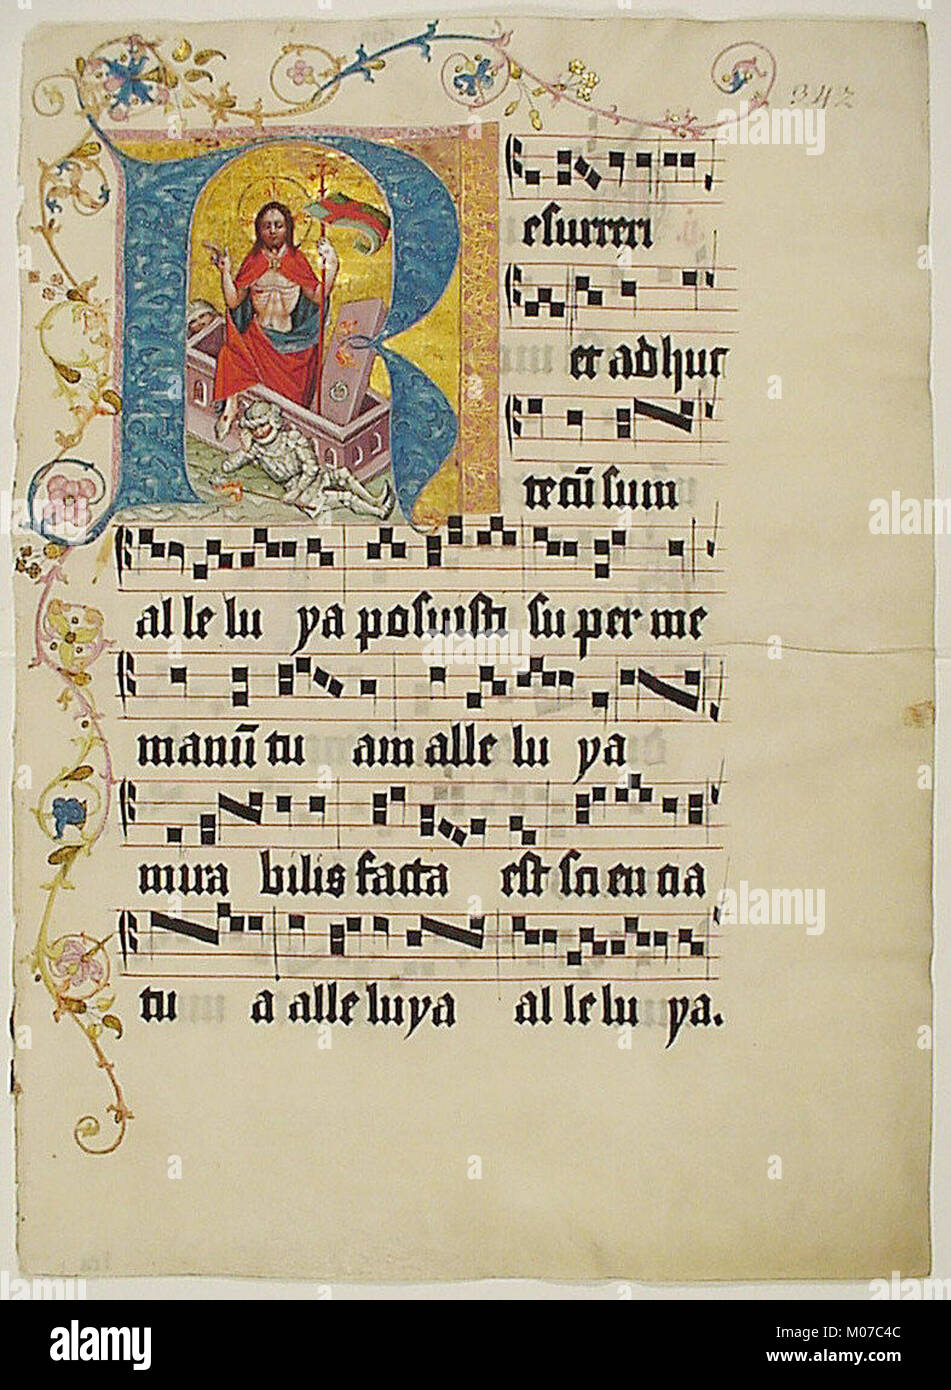 342
Resurrexi
et adhuc
tecū sum
al le lu ya posuisti su per me
manū tu am alle lu ya
mira bilis facta est sci en cia
tu a alle luya al le lu ya.
alamy
Image ID: M07C4C
www.alamy.com